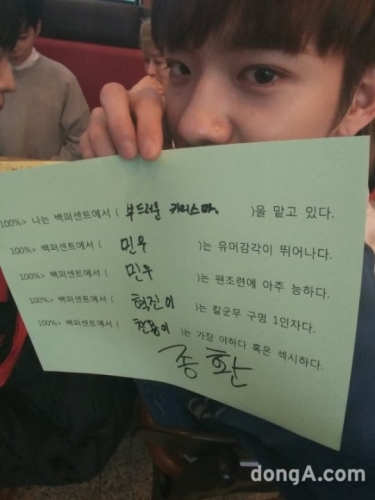 100%> 나는 백퍼센트에서 ( 부드러운 카리스마 )을 맡고 있다.
100%> 백퍼센트에서 ( 민우 )는 유머감각이 뛰어나다.
100%> 백퍼센트에서 ( 민우 )는 팬조련에 아주 능하다.
100%> 백퍼센트에서 ( 혁진이 )는 칼군무 구멍 1인자다.
100%> 백퍼센트에서 ( 찬용이 )는 가장 야하다 혹은 섹시하다.
종환
dongA.com